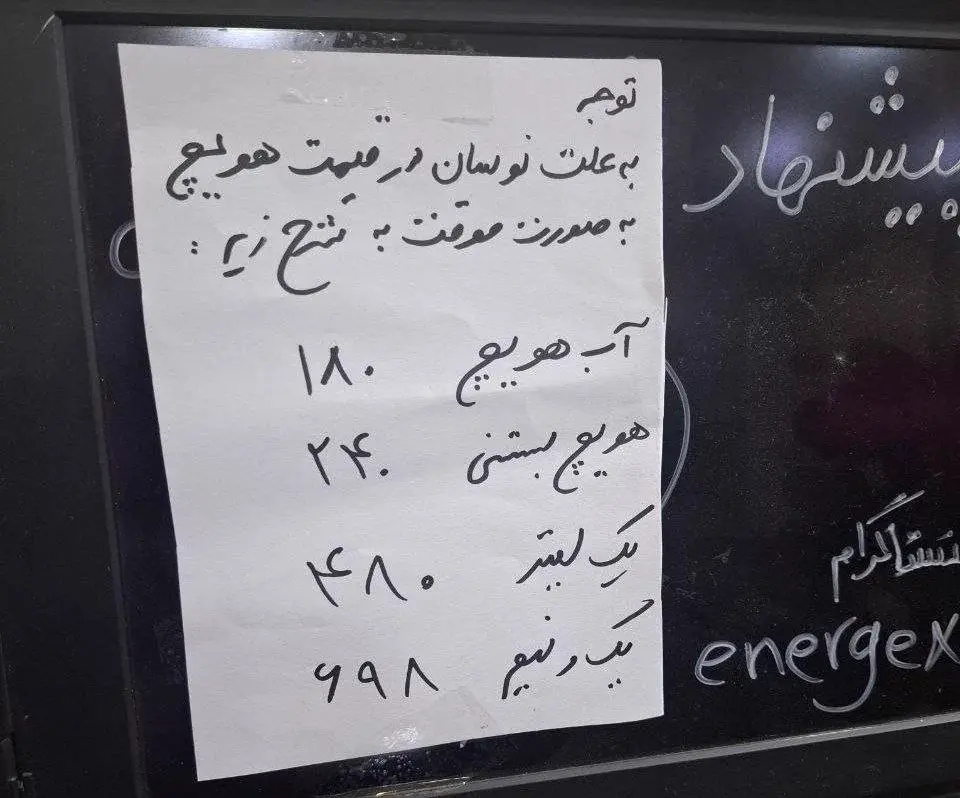 توجه
به علت نوسان در قیمت هویچ
به صورت موقت به شرح زیر :
آب هویچ ۱۸۰
هویچ بستنی ۲۴۰
یک لیتر ۴۸۰
یک و نیم ۶۹۸
پیشنهاد
energex